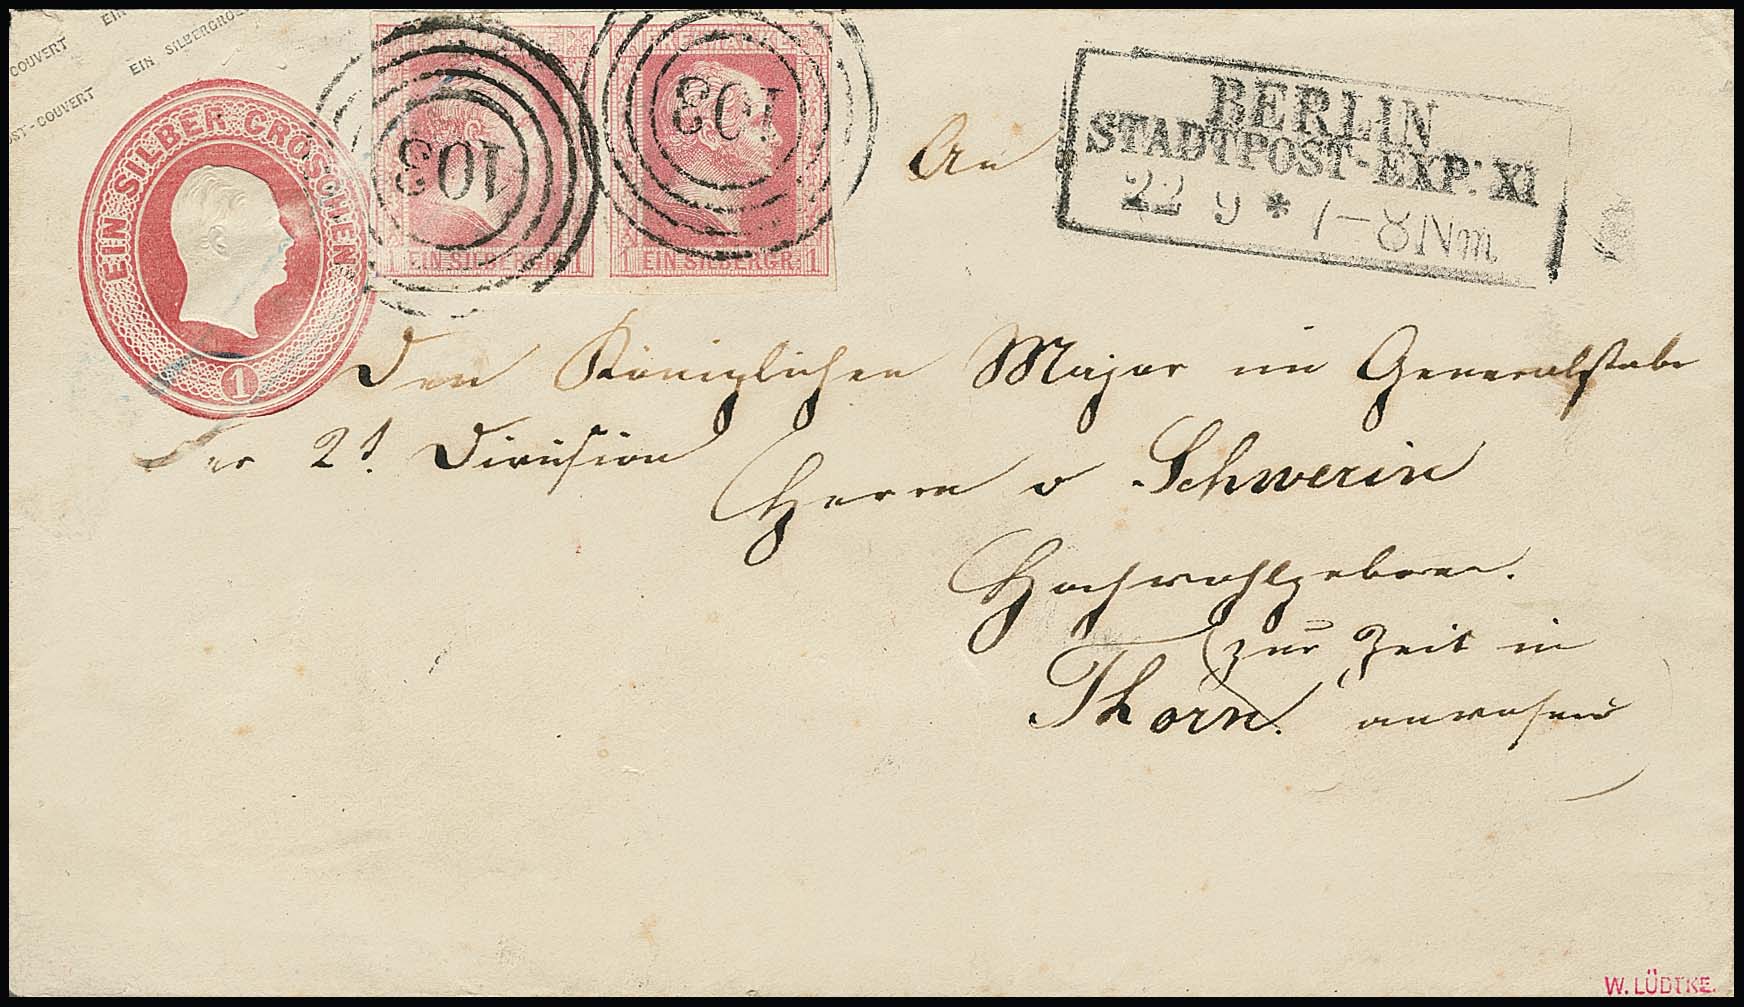 EIN
COUVERT EIN SILBERGROS
ST-COUVERT
EIN SILBER GROSCHEN
1
1 EIN SILBERGR. 1
1 EIN SILBERGR. 1
103
103
BERLIN
STADTPOST-EXP: XI
22 9 * 7-8 Nm
An
Den Königlichen Major im Generalstabe
der 2t. Division
Herrn v Schwerin
Hochwohlgeboren.
(zur Zeit in
Thorn. anwesend)
W. LÜDTKE.